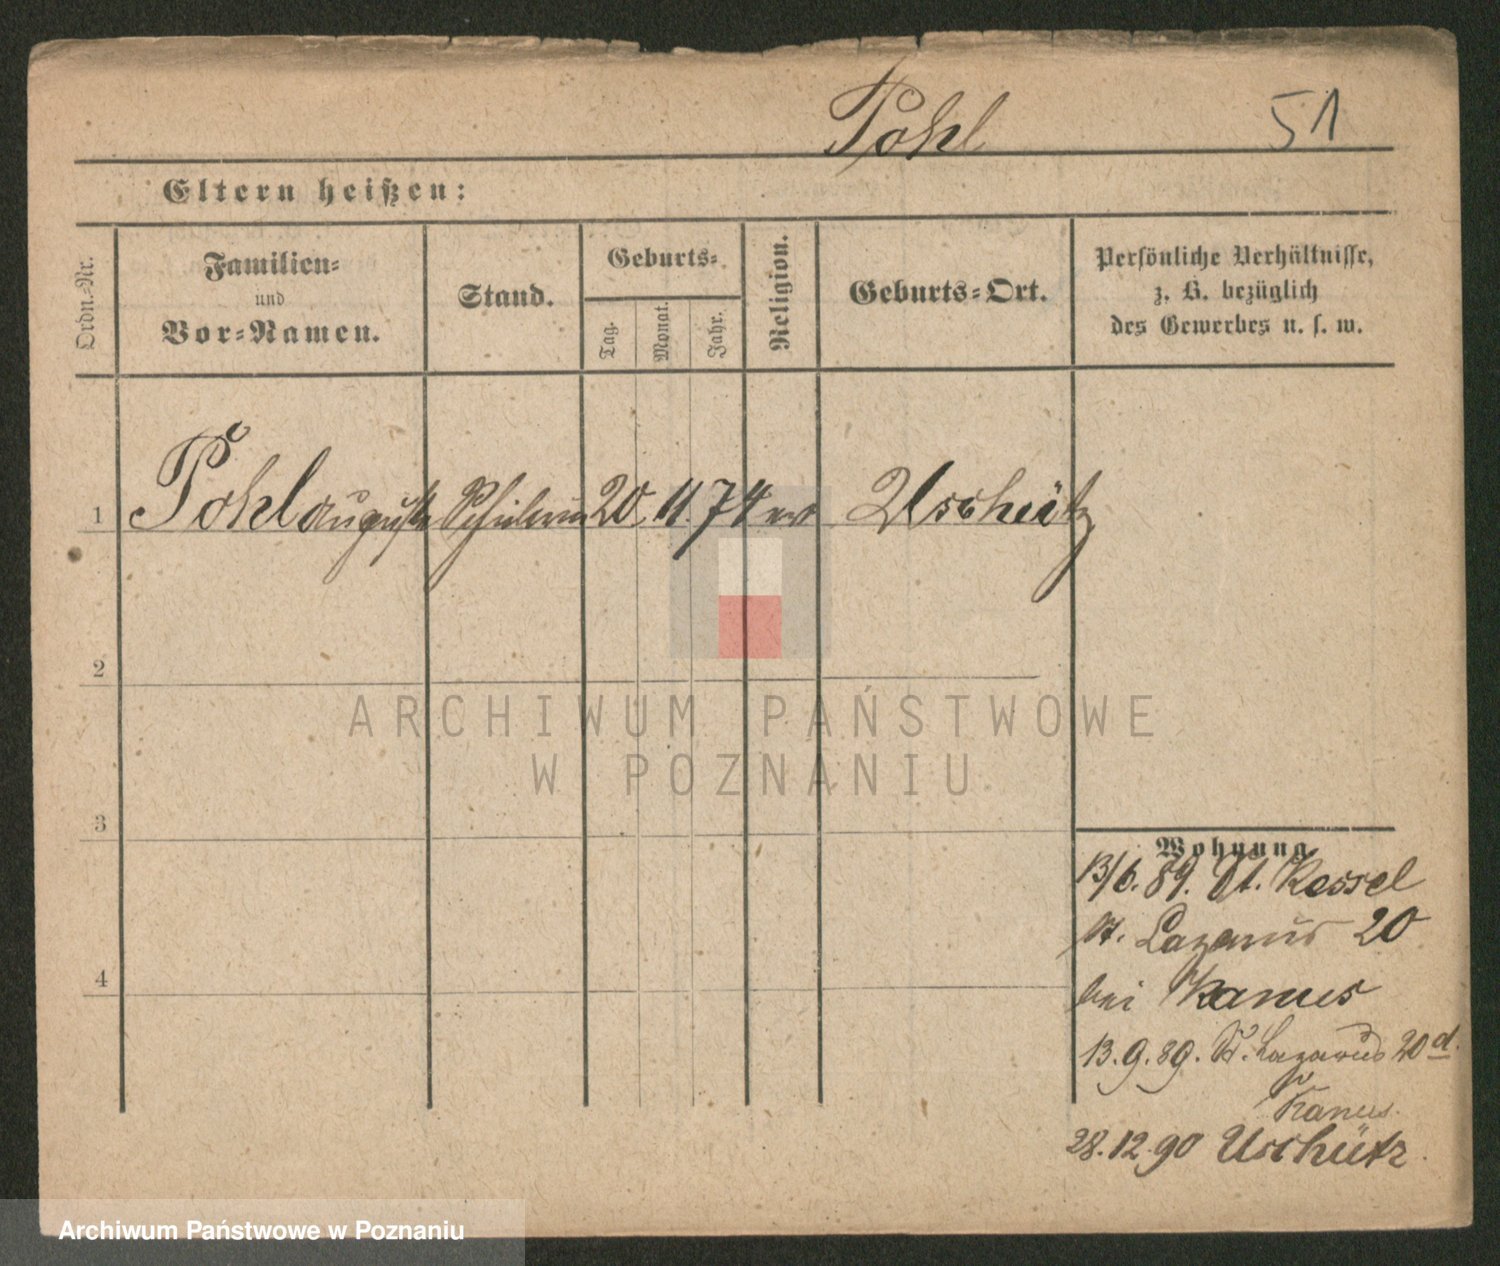 Pohl 51
Eltern heißen:
Ordn.-Nr.
Familien-
und
Vor-Namen.
Stand.
Geburts-
Tag.
Monat.
Jahr.
Religion.
Geburts-Ort.
Persönliche Verhältnisse,
z. B. bezüglich
des Gewerbes u. s. w.
1 Pohl Auguste Schülerin 20 11 74 ev Uschütz
2
3
4
Wohnung
13/6. 89. St. Kessel
St. Lazarus 20
bei Kanus
13.9.89. St. Lazarus 20 d.
Kanus.
28.12.90 Uschütz.
ARCHIWUM PAŃSTWOWE
W POZNANIU
Archiwum Państwowe w Poznaniu